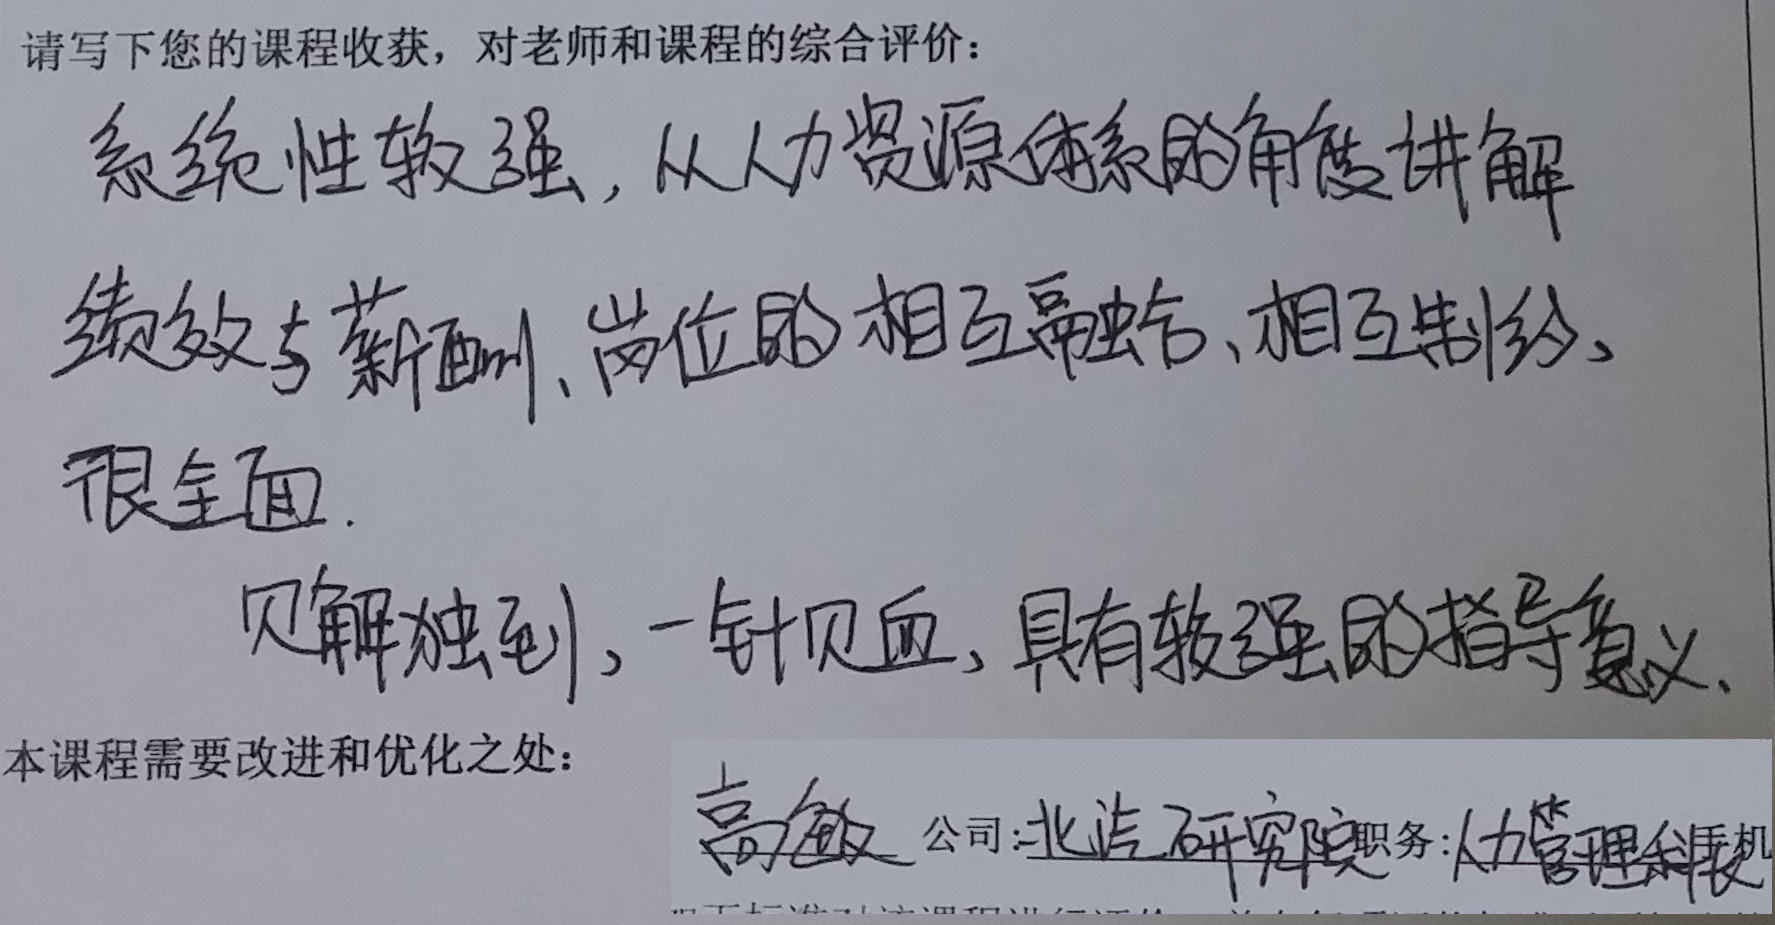 请写下您的课程收获，对老师和课程的综合评价：
系统性较强，从人力资源体系的角度讲解
绩效与薪酬、岗位的相互融合、相互制约、
很全面.
见解独到，一针见血，具有较强的指导意义、
本课程需要改进和优化之处：
高敏 公司：北汽研究院 职务：人力管理科科长 手机